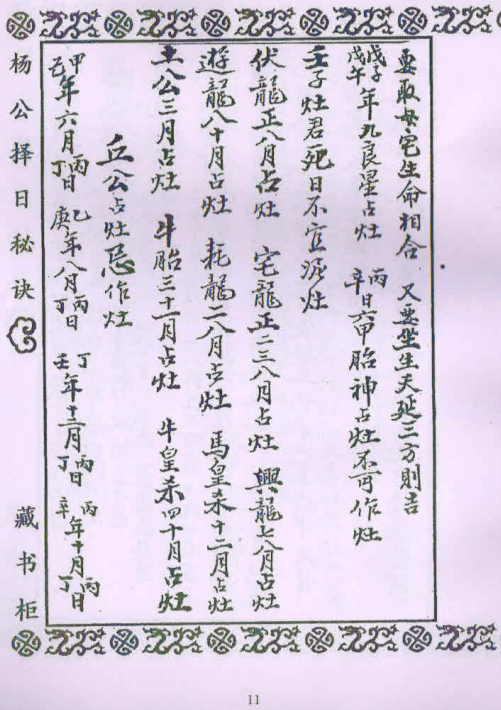 要取宅生命相合 又要坐生天延三方則吉
戊子戊午年九良星占灶 丙辛日六甲胎神占灶不可作灶
壬子灶君死日不宜泥灶
伏龍正八月占灶 宅龍正二三八月占灶 興龍七八月占灶
遊龍八十月占灶 耗龍二八月占灶 馬皇杀十二月占灶
土公三月占灶 牛胎三十一月占灶 牛皇杀四十月占灶
丘公占灶忌作灶
甲己年六月丙丁日 乙庚年八月丙丁日 丁壬年十二月丙丁日 丙辛年十月丙丁日
杨公择日秘诀 藏书柜
11